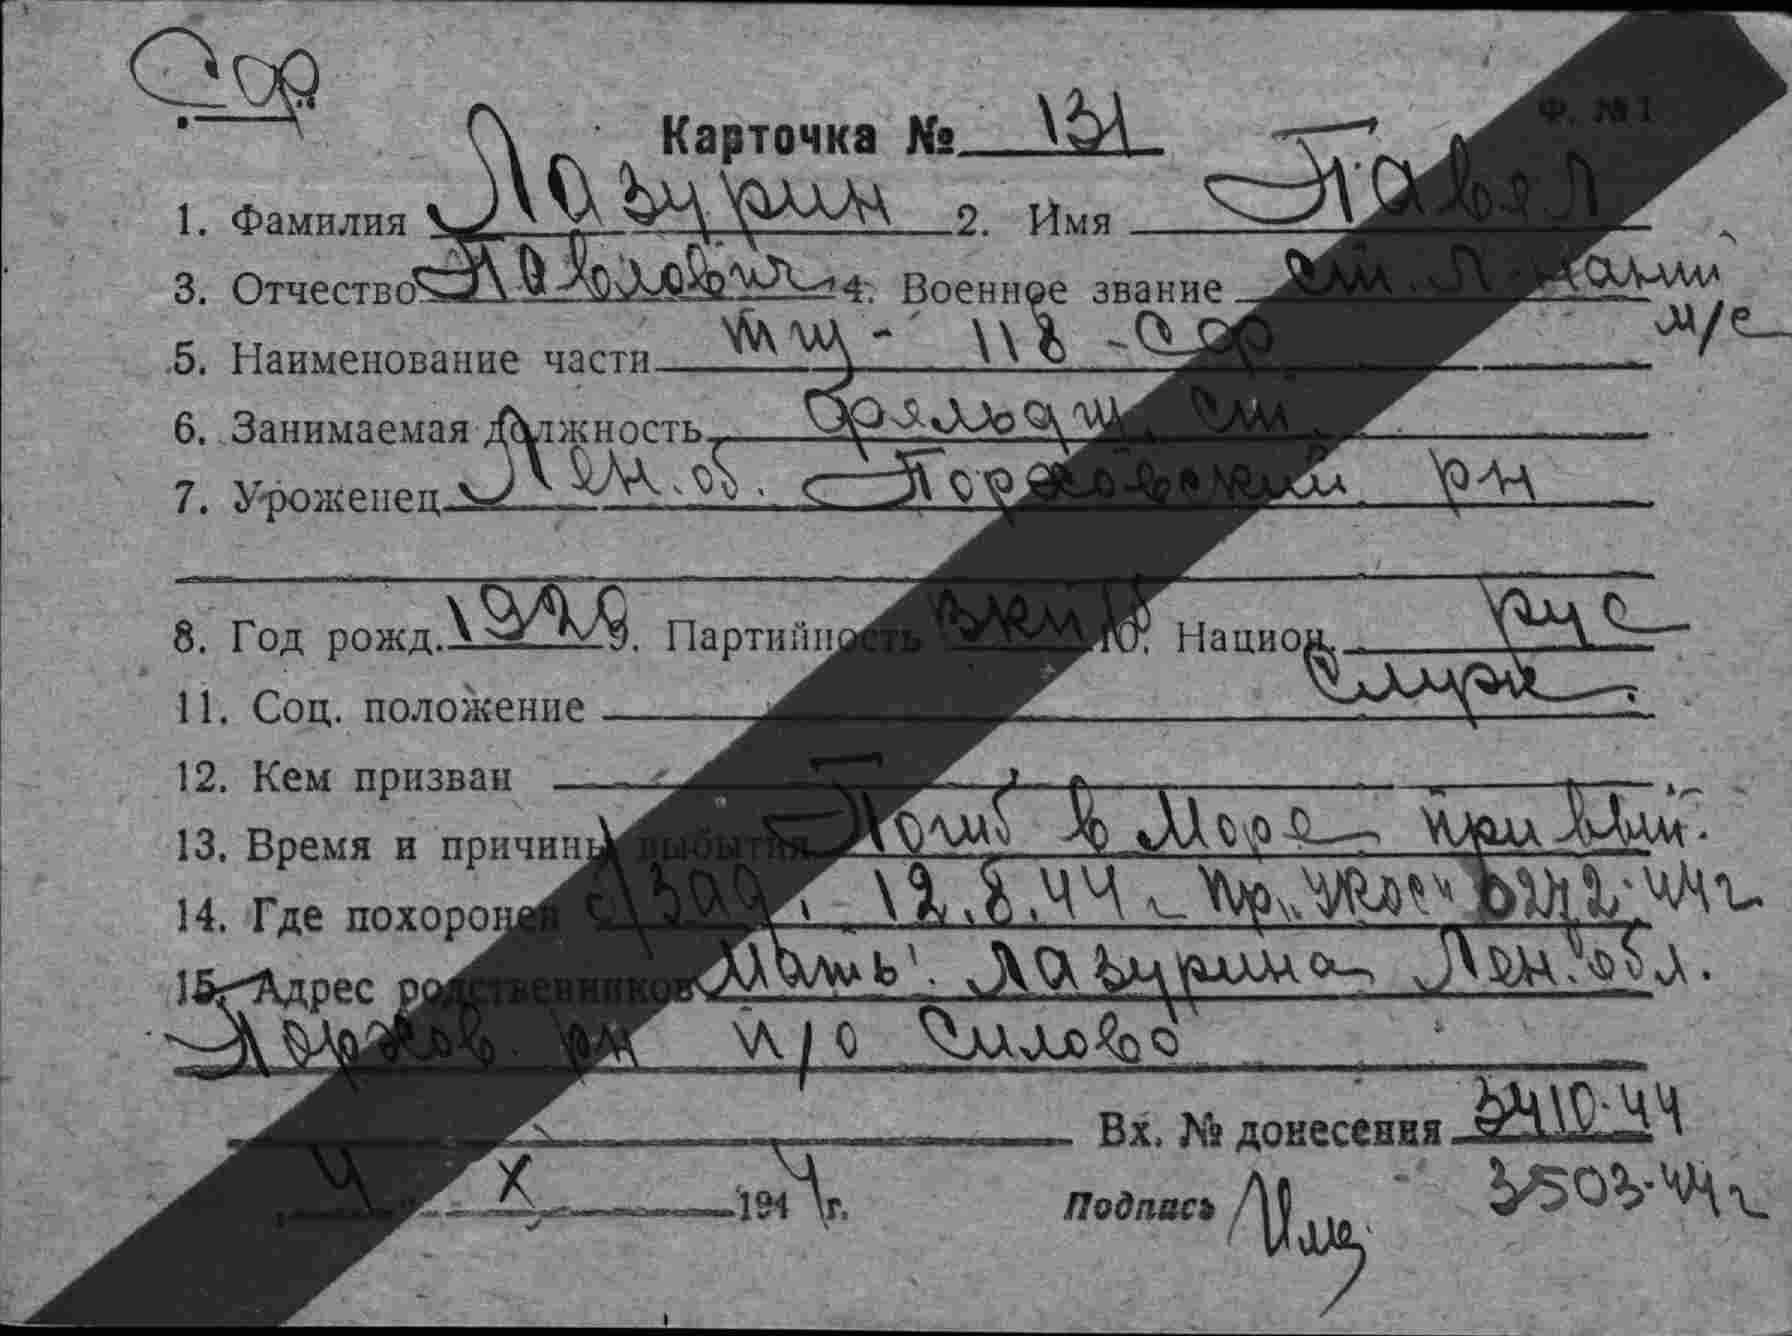 Сф
Ф. № 1
Карточка № 131
1. Фамилия Лазурин 2. Имя Павел
3. Отчество Павлович 4. Военное звание ст. л-нант
м/с
5. Наименование части тщ - 118 - СФ
6. Занимаемая должность фельдш. ст.
7. Уроженец Лен. об. Порховский рн
8. Год рожд. 1920 9. Партийность ВКП/б 10. Национ. рус
11. Соц. положение Служ.
12. Кем призван
13. Время и причины выбытия Погиб в море при вып.
14. Где похоронен б/зад. 12.8.44 г пр. 0272.44 г
15. Адрес родственников Мать: Лазурина Лен. обл.
Порхов. рн п/о Силово
Вх. № донесения 3410.44
4 X 1944 г. Подпись 3503.44 г